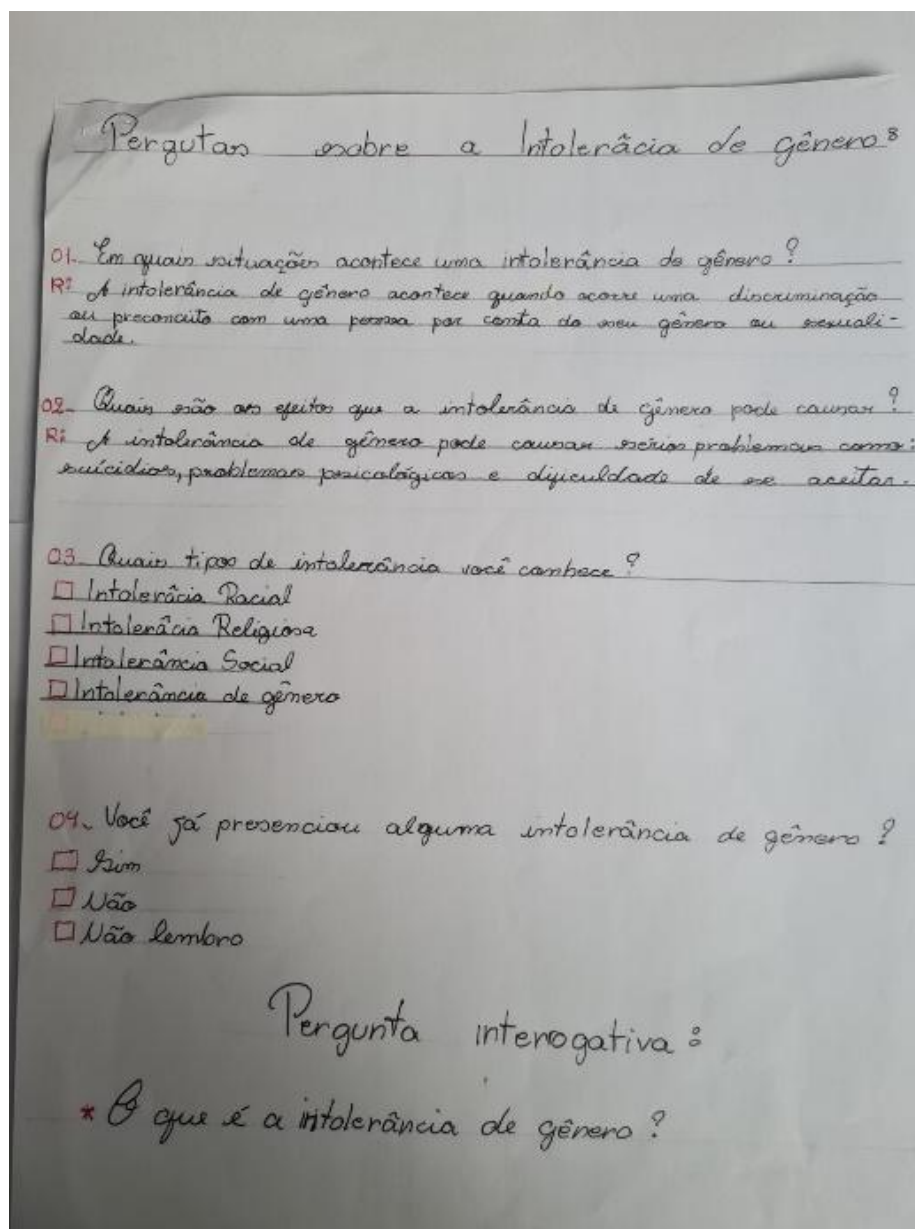 Pergutas sobre a Intolerâcia de gênero:
01. Em quais situações acontece uma intolerância de gênero?
R: A intolerância de gênero acontece quando acorre uma discriminação
ou preconceito com uma pessoa por conta do seu gênero ou sexuali-
dade.
02- Quais são os efeitos que a intolerância de gênero pode causar?
R: A intolerância de gênero pode causar sérios problemas como:
suicídios, problemas psicológicos e dificuldade de se aceitar.
03- Quais tipos de intolerância você conhece?
Intolerâcia Racial
Intolerâcia Religiosa
Intolerância Social
Intolerância de gênero
04- Você já presenciou alguma intolerância de gênero?
Sim
Não
Não lembro
Pergunta interogativa:
* O que é a intolerância de gênero?